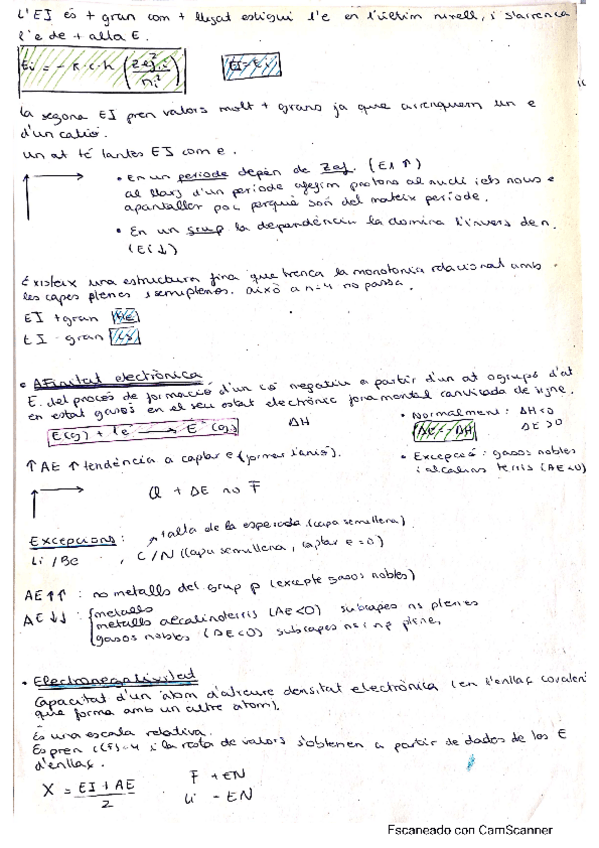 L'EI és + gran com + lligat estigui l'e en l'últim nivell, i s'arrenca
l'e de + alta E.
Ei = - R·c·h (Zef²/ni²) EI = -Ei
La segona EI pren valors molt + grans ja que arrenquem un e
d'un catió.
Un at té tantes EI com e.
• En un periode depèn de Zef. (EI ↑)
al llarg d'un periode afegim protons al nucli i els nous e
apantallen poc perquè són del mateix periode.
• En un grup la dependència la domina l'invers de n.
(Ei ↓)
Existeix una estructura fina que trenca la monotonia relacional amb
les capes plenes i semiplenes. Això a n=4 no passa.
EI + gran He
EI - gran
• Afinitat electrònica
E. del procés de formació d'un ió negatiu a partir d'un at o grups d'at
en estat gasós en el seu estat electrònic fonamental canviada de signe.
E(g) + 1e → E⁻(g) ΔH
• Normalment: ΔH<0
AE = -ΔH AE>0
↑AE ↑tendència a captar e (formar l'anió).
• Excepció: gasos nobles
i alcalins terris (AE<0)
Cl + AE no F
Excepcions: + alta de la esperada (capa semiplena)
Li/Be , C/N (capa semiplena, captar e = 0)
AE↑↑ : no metalls del grup p (excepte gasos nobles)
AE↓↓ : metalls
metalls alcalinoterris (AE<0) subcapes ns plenes
gasos nobles (AE<0) subcapes ns i np plenes
• Electronegativitat
Capacitat d'un àtom d'atreure densitat electrònica (en l'enllaç covalent
que forma amb un altre àtom).
És una escala relativa.
Es pren χ(F)=4 i la resta de valors s'obtenen a partir de dades de les E
d'enllaç.
X = EI + AE / 2
F + EN
Li - EN
Escaneado con CamScanner